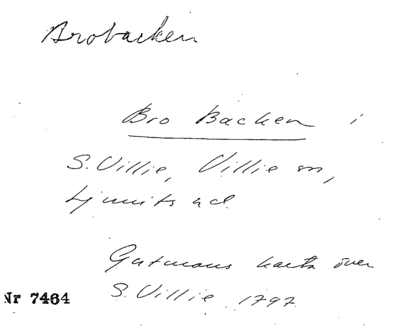 Brobacken
Bro Backen i
S. Villie, Villie sn,
Ljunits hd.
Gutmans karta över
Nr 7464 S. Villie 1797